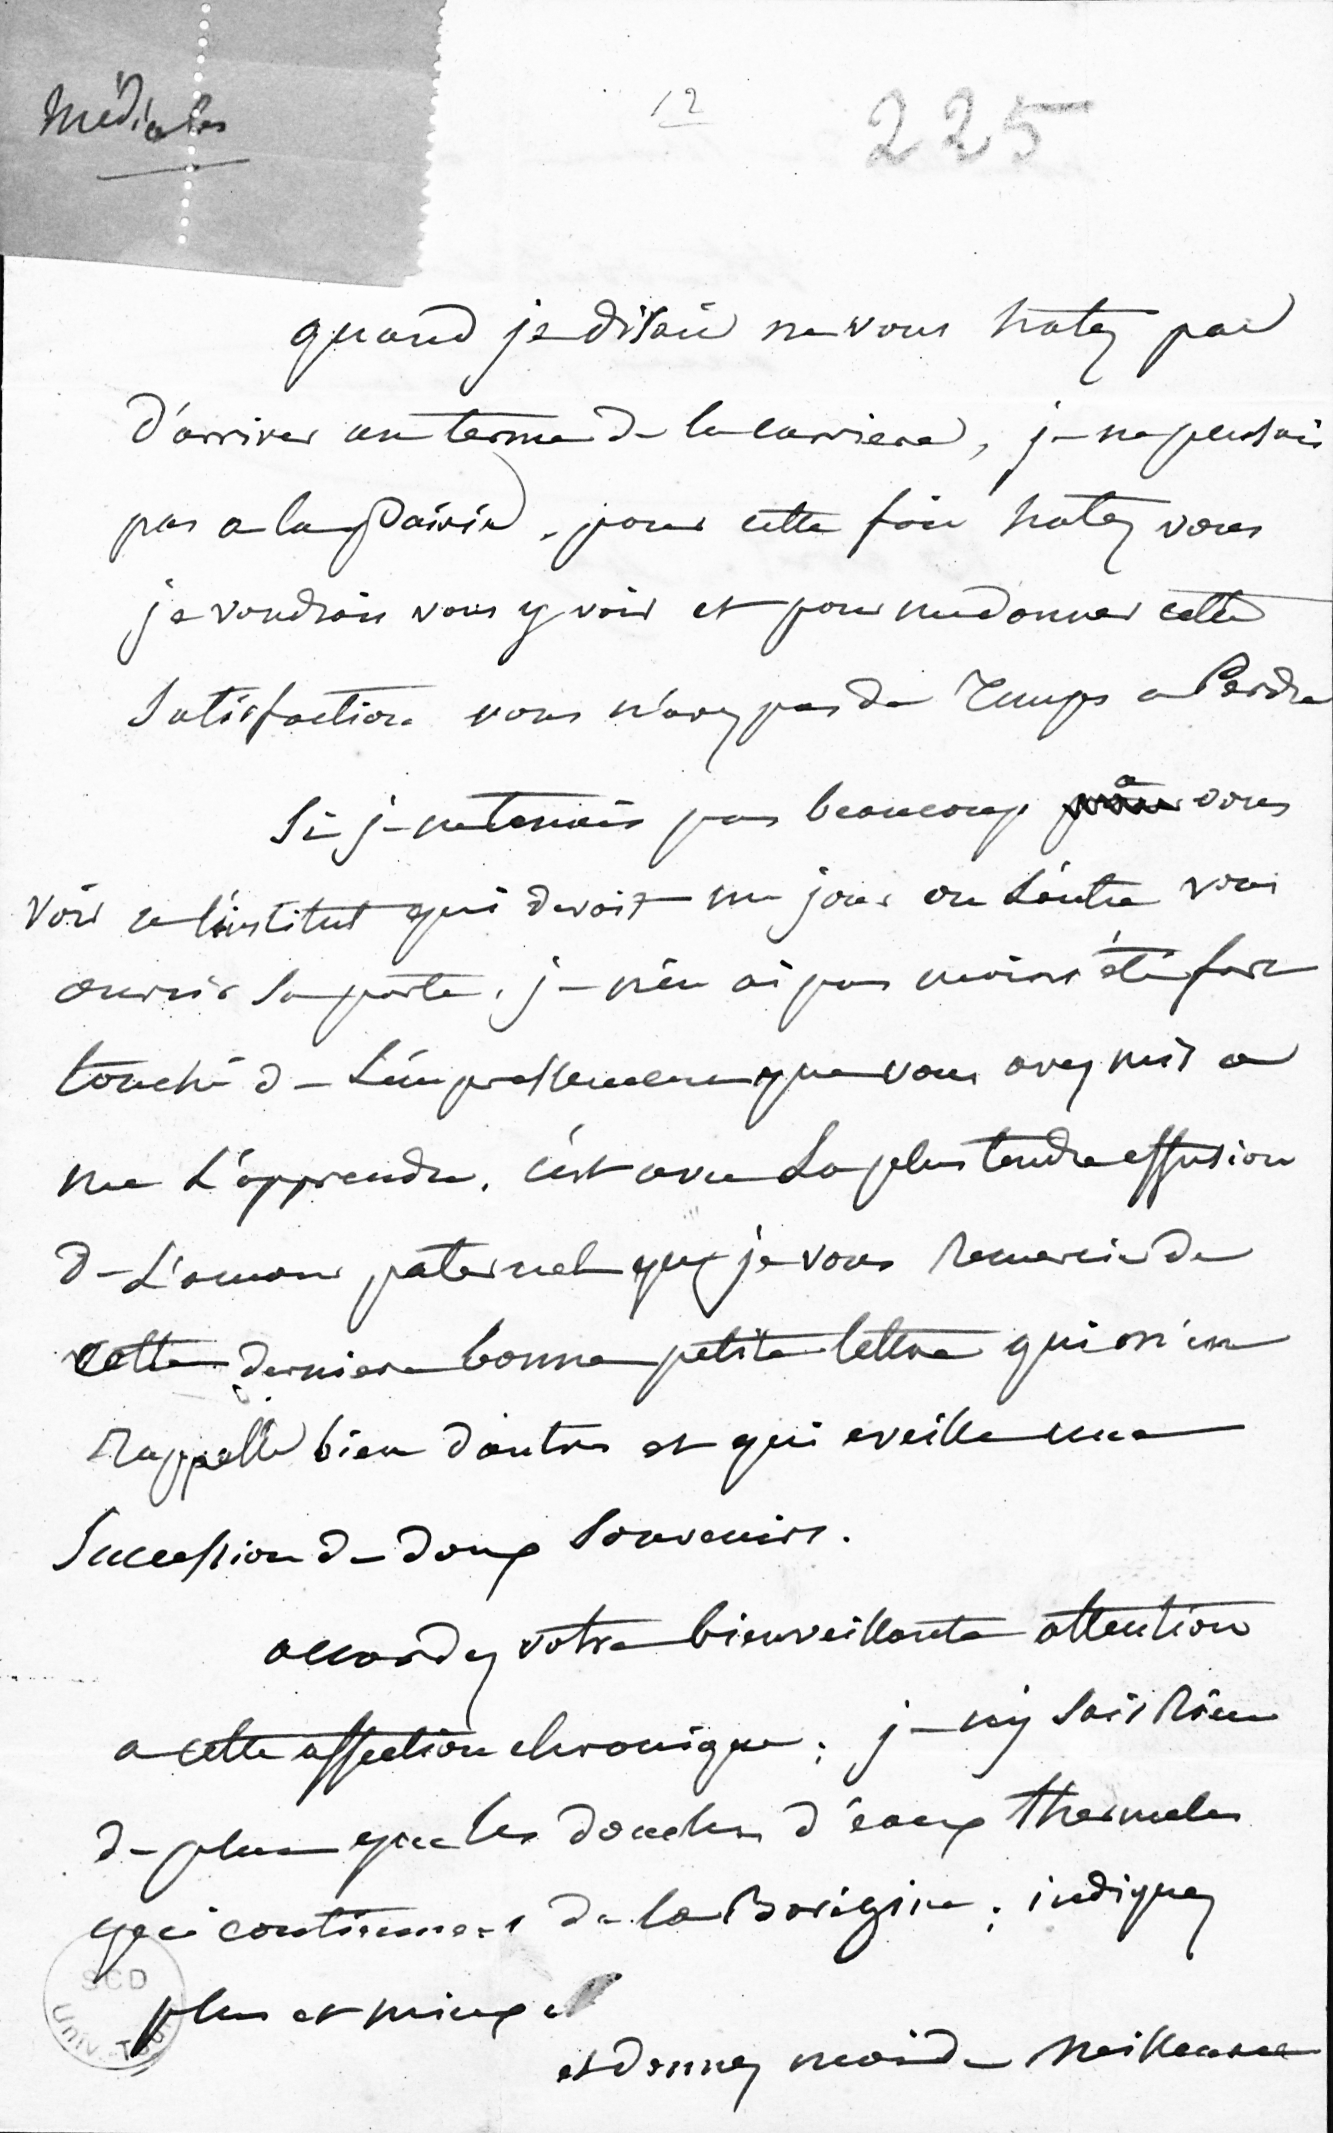 Médicales
12
225
quand je disais ne vous hatez pas
d'arriver au terme de la carriere, je ne pensais
pas a la Pairie. pour cette fois hatez vous
je voudrais vous y voir et pour me donner cette
Satisfaction vous n'avez pas de Temps a Perdre
Si je ne tenais pas beaucoup a vous
voir a l'institut qui devoit un jour ou L'autre vous
ouvrir sa porte, je n'en ai pas moins été fort
touché de L'empressement que vous avez mis a
me L'apprendre. c'est avec La plus tendre effusion
de L'amour paternel que je vous Remercie de
cette derniere bonne petite lettre qui m'en
Rappelle bien d'autres et qui eveille une
Succession de doux Souvenirs.
accordez votre bienveillante attention
a cette affection chronique; je n'y sais Rien
de plus que les douches d'eaux thermales
qui contiennent de la Barégine; indiquez
plus et mieux
et donnez moi de Meilleures
SCD
Univ. Tours